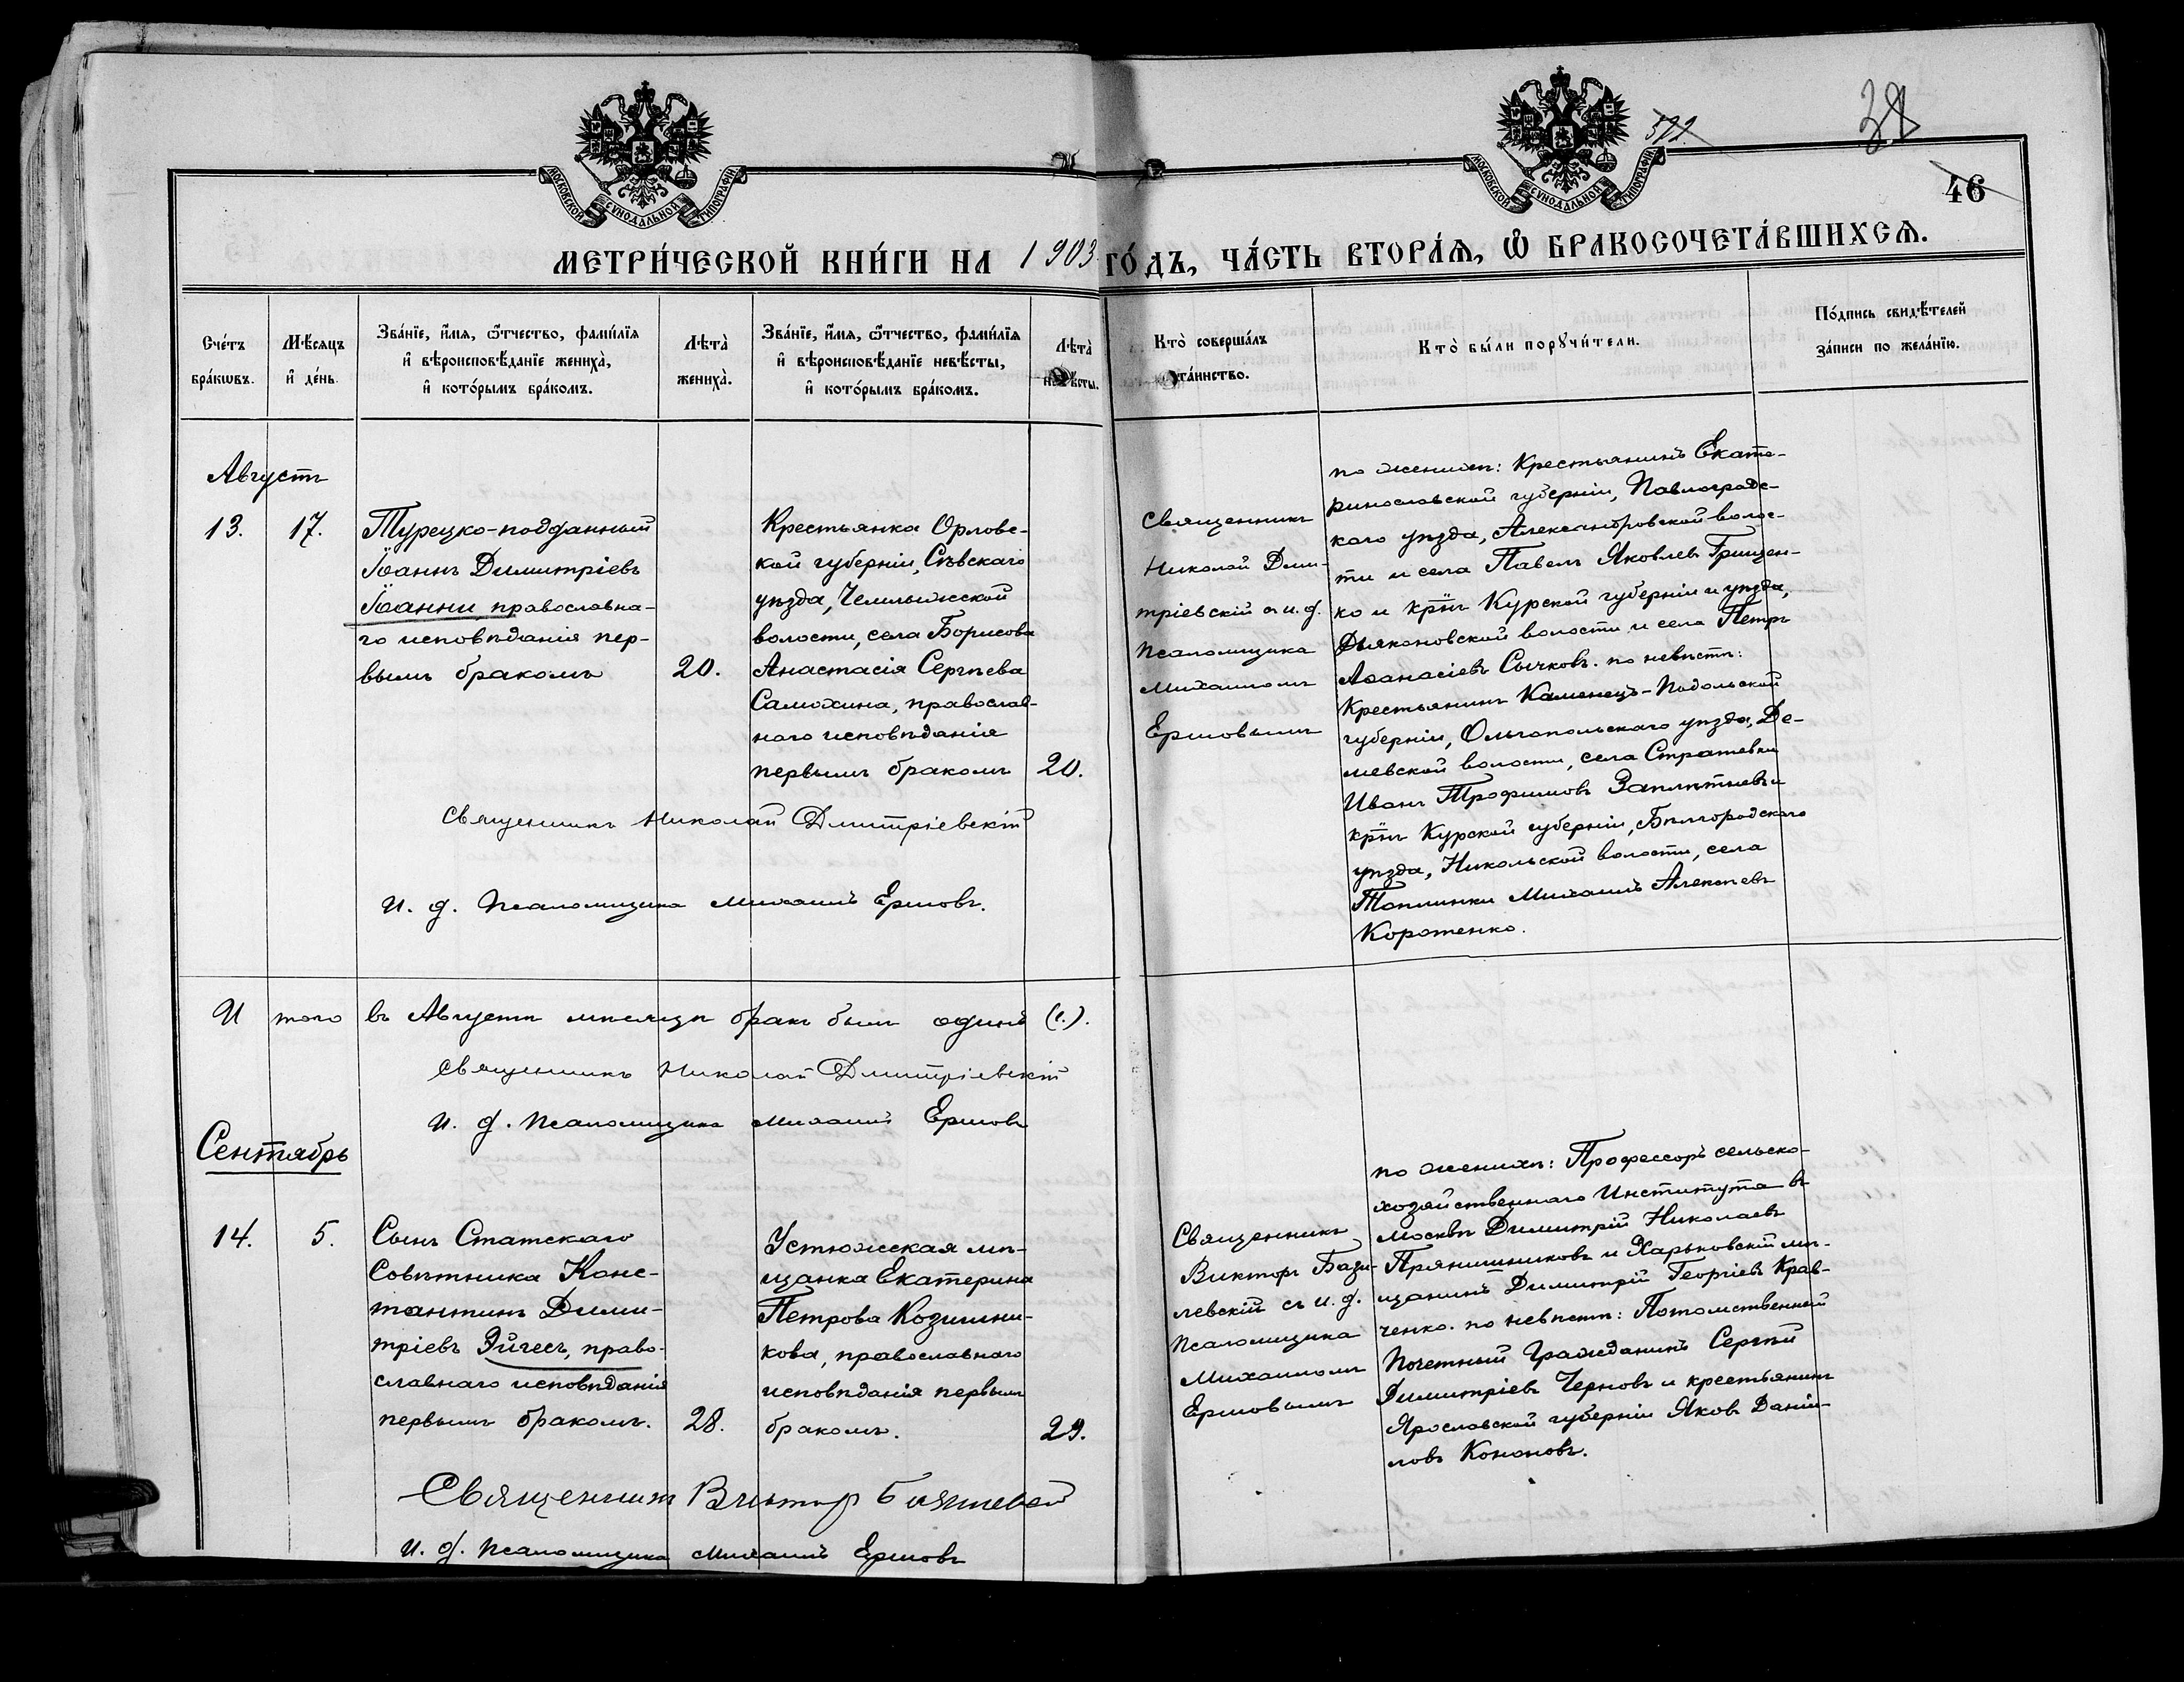 МОСКОВСКОЙ СѴНОДАЛЬНОЙ ТИПОГРАФІИ
МОСКОВСКОЙ СѴНОДАЛЬНОЙ ТИПОГРАФІИ
38
46
МЕТРИ́ЧЕСКОЙ КНИ́ГИ НА 1903 ГО́ДЪ, ЧА́СТЬ ВТОРА́Ѧ, Ѽ БРАКОСОЧЕТА́ВШИХСѦ.
Сче́тъ
бра́кѡвъ.
Мѣ́сѧцъ
и҆ де́нь.
Зва́нїе, и҆́мѧ, ѻ҆́тчество, фами́лїѧ
и҆ вѣроисповѣ́данїе жениха̀,
и҆ кото́рымъ бра́комъ.
Лѣта̀
жениха̀.
Зва́нїе, и҆́мѧ, ѻ҆́тчество, фами́лїѧ
и҆ вѣроисповѣ́данїе невѣ́сты,
и҆ кото́рымъ бра́комъ.
Лѣта̀
невѣ́сты.
Кто̀ соверша́лъ
та́инство.
Кто̀ бы́ли порꙋчи́тели.
По́дпись свидѣ́телей
за́писи по жела́нїю.
Августъ
13.
17.
Турецко-подданный
Іоаннъ Димитріевъ
Іоанни православна-
го исповѣданія пер-
вымъ бракомъ
20.
Крестьянка Орловс-
кой губерніи, Сѣвскаго
уѣзда, Чемлыжской
волости, села Борисова
Анастасія Сергѣева
Самохина, православ-
наго исповѣданія
первымъ бракомъ
20.
Священникъ
Николай Дми-
тріевскій с и. д.
Псаломщика
Михаиломъ
Ершовымъ
по женихѣ: Крестьянинъ Екате-
ринославской губерніи, Павлоградс-
каго уѣзда, Александровской волос-
ти и села Павелъ Яковлевъ Грицен-
ко и кр̃нъ Курской губерніи и уѣзда,
Дьяконовской волости и села Петръ
Аѳанасіевъ Сычковъ. по невѣстѣ:
Крестьянинъ Каменецъ-Подольской
губерніи, Ольгопольскаго уѣзда, Де-
мевской волости, села Стратевки
Иванъ Трофимовъ и
кр̃нъ Курской губерніи, Бѣлгородскаго
уѣзда, Никольской волости, села
Топлинки Михаилъ Алексѣевъ
Коротенко.
Священникъ Николай Дмитріевскій
И. д. Псаломщика Михаилъ Ершовъ.
Итого въ Августѣ мѣсяцѣ бракъ былъ одинъ (1).
Священникъ Николай Дмитріевскій
И. д. Псаломщика Михаилъ Ершовъ
Сентябрь
14.
5.
Сынъ Статскаго
Совѣтника Конс-
тантинъ Дими-
тріевъ Эйгесъ, право-
славнаго исповѣданія
первымъ бракомъ.
28.
Устюжская мѣ-
щанка Екатерина
Петрова Козмини-
кова, православнаго
исповѣданія первымъ
бракомъ.
29.
Священникъ
Викторъ Бази-
левскій съ и. д.
Псаломщика
Михаиломъ
Ершовымъ
по женихѣ: Профессоръ сельско-
хозяйственнаго Института въ
Москвѣ Димитрій Николаевъ
Прянишниковъ и Харьковскій мѣ-
щанинъ Димитрій Георгіевъ Крав-
ченко. по невѣстѣ: Потомственный
Почетный Гражданинъ Сергѣй
Димитріевъ Черновъ и крестьянинъ
Ярославской губерніи Яковъ Даніи-
ловъ Кононовъ.
Священникъ Викторъ Базилевскій
И. д. Псаломщика Михаилъ Ершовъ